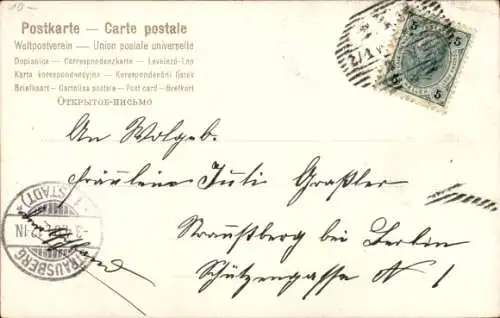 10-
Postkarte — Carte postale
Weltpostverein — Union postale universelle
Dopisnice — Correspondenzkarte — Levelező-Lap
Karta korespondencyjna — Korespondenční lístek
Briefkaart — Cartolina postale — Post card — Brefkort
ОТКРЫТОЕ-ПИСЬМО
5 5
An Wolgeb.
Fräulein Juli Graßler
Straußberg bei Berlin
Schützengasse N 1
(STADT)
12-1N
STRAUSBERG